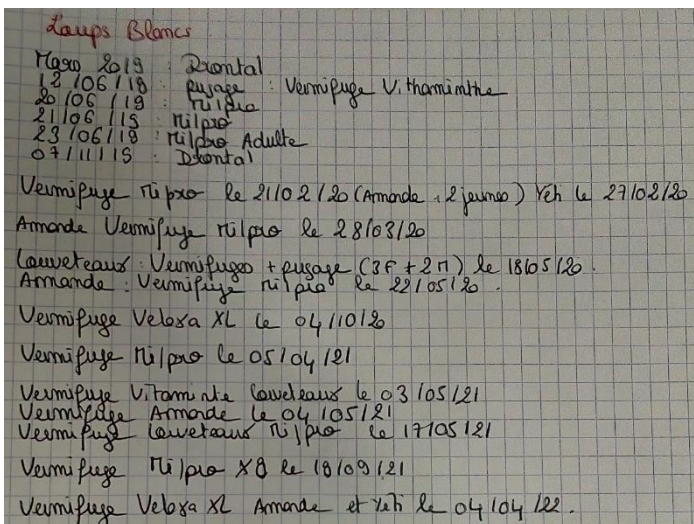 Loups Blancs
Mars 2019 : Drontal
12/06/19 : pusage : Vermifuge Vithaminthe
20/06/19 : Milpro
21/06/19 : Milpro
23/06/19 : Milpro Adulte
07/11/19 : Drontal
Vermifuge Milpro le 21/02/20 (Amande + 2 jeunes) Yéti le 27/02/20
Amande Vermifuge Milpro le 28/03/20
Louveteaux : Vermifuges + pusage (3F + 2M) le 18/05/20.
Amande : Vermifuge Milpro le 22/05/20.
Vermifuge Veloxa XL le 04/10/20
Vermifuge Milpro le 05/04/21
Vermifuge Vitaminte louveteaux le 03/05/21
Vermifuge Amande le 04/05/21
Vermifuge louveteaux Milpro le 17/05/21
Vermifuge Milpro X8 le 18/09/21
Vermifuge Veloxa XL Amande et Yéti le 04/04/22.